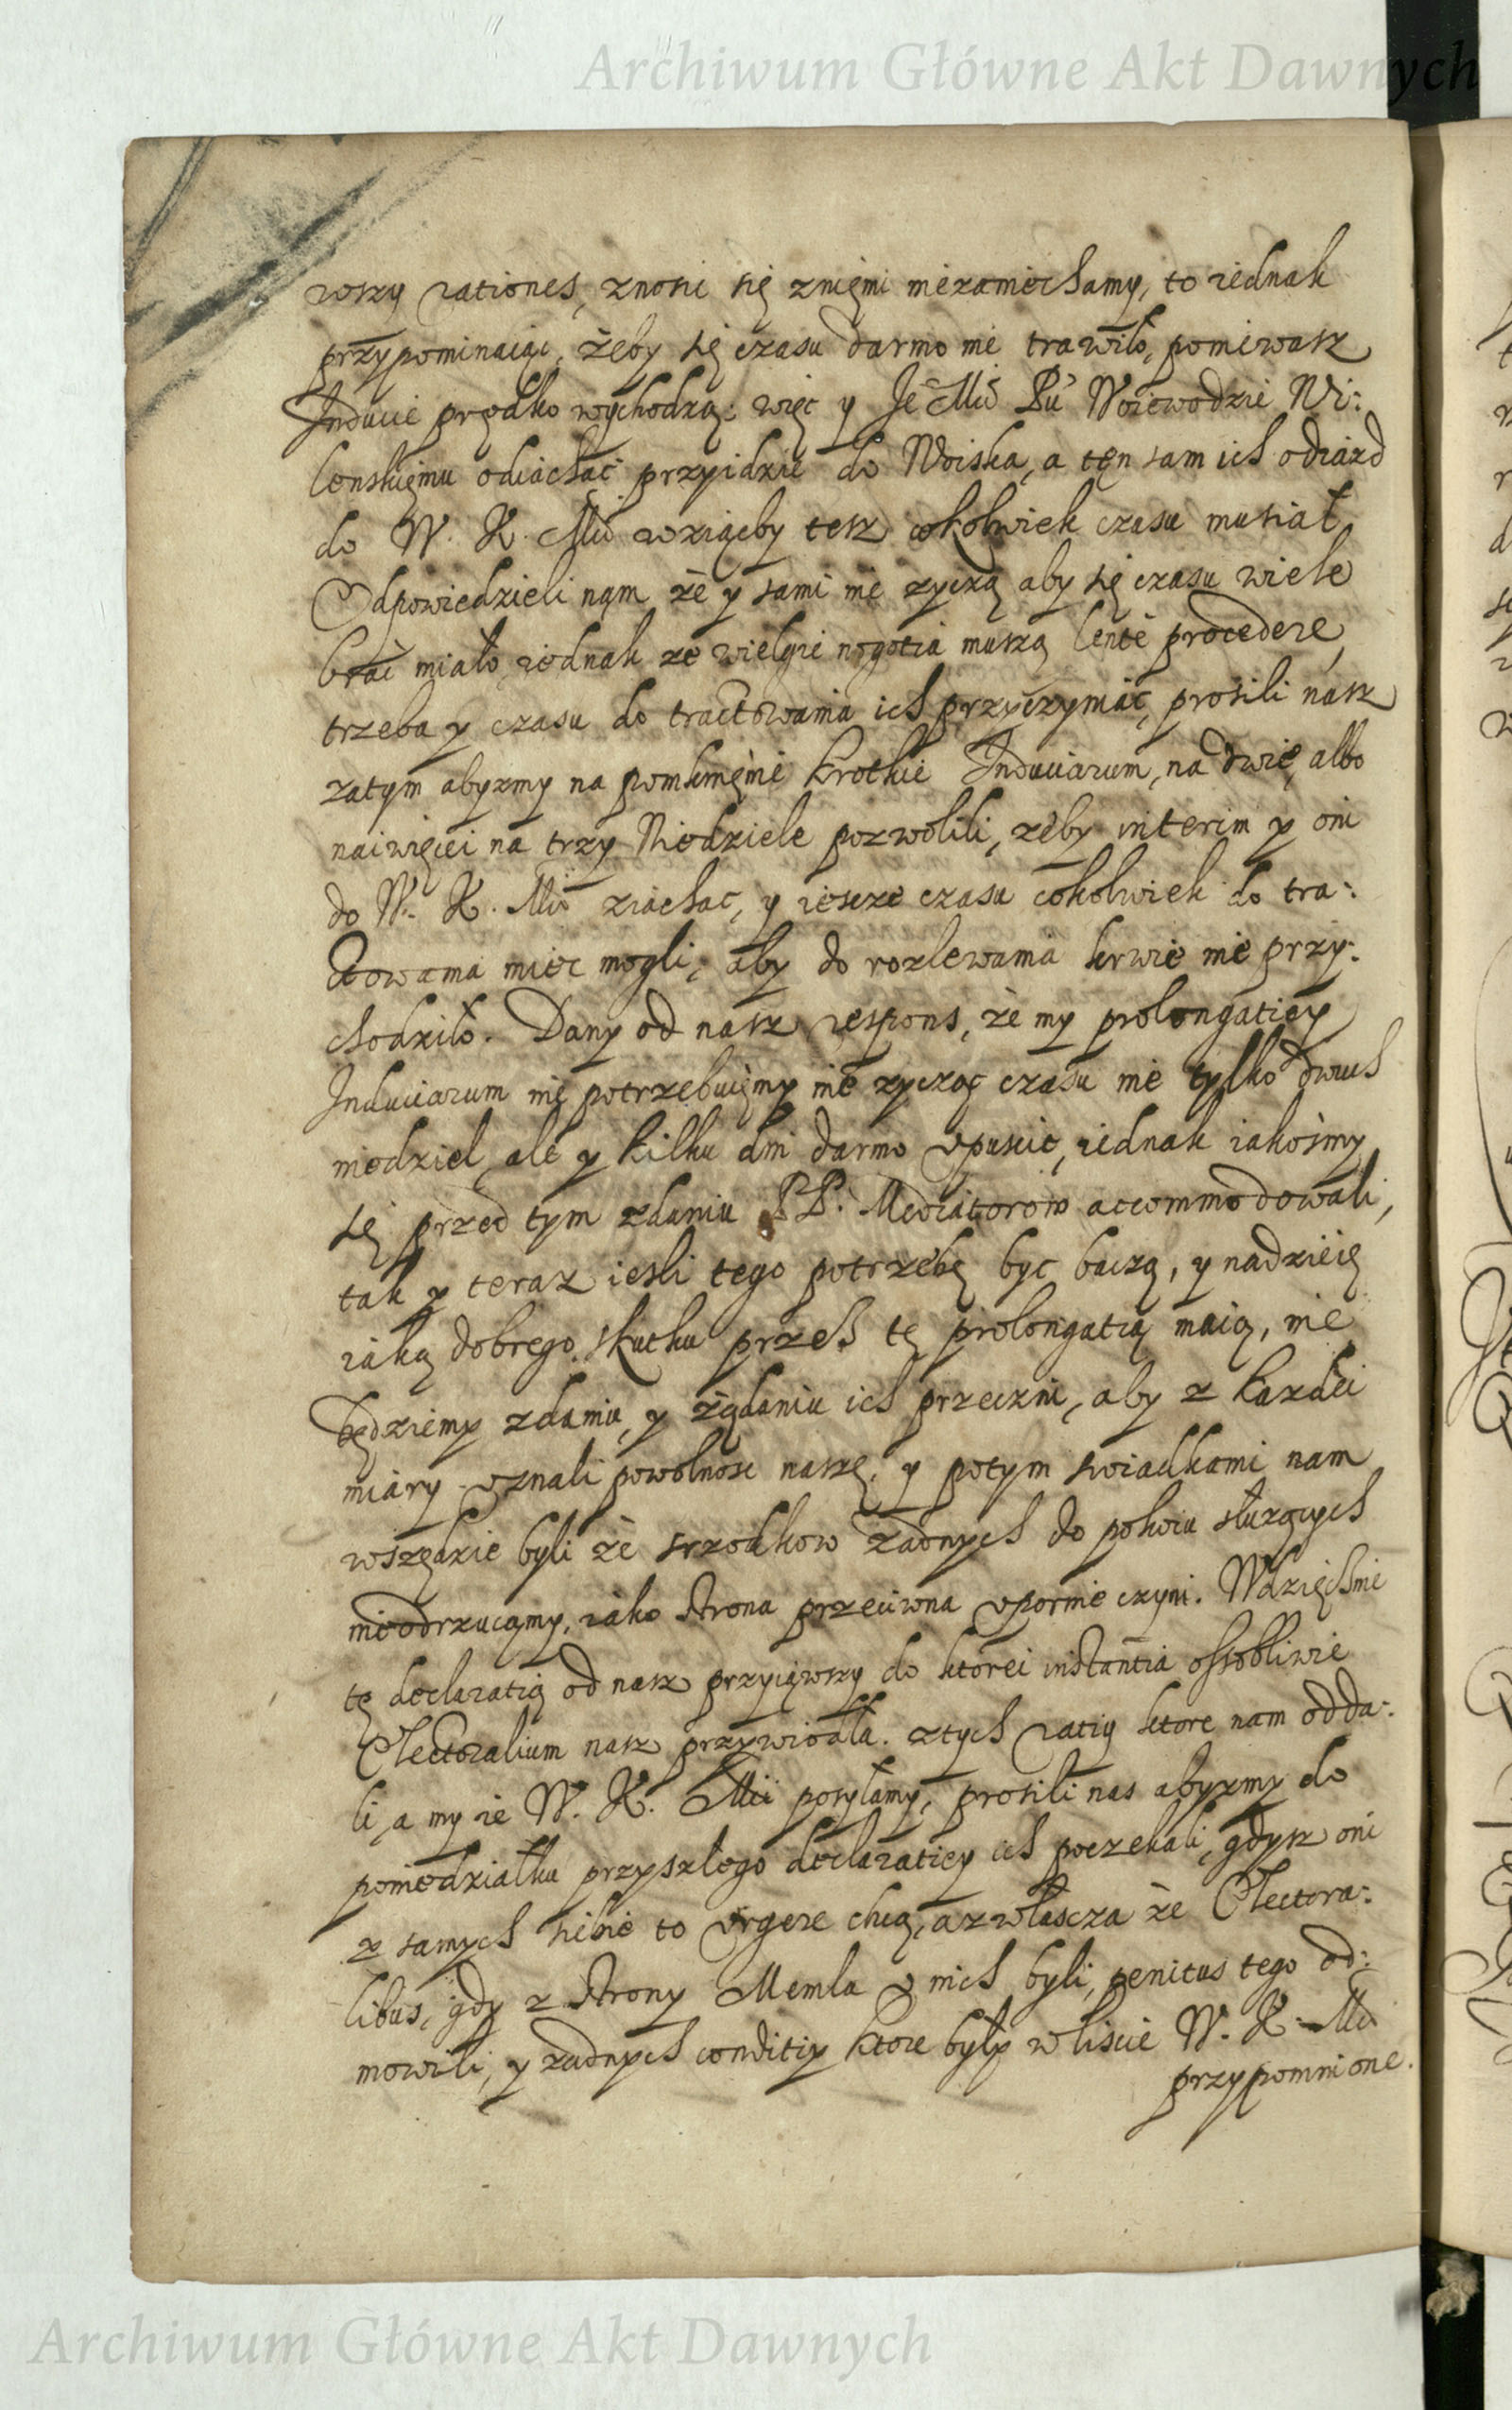 Archiwum Główne Akt Dawnych
wszy rationes, znosic się zniemi niezaniechamy, to iednak
przypominaiąc, żeby się czasu darmo nie trawiło, poniewasz
Inducie prędko wychodzą: więc y Je Mci Pu Woiewodzie Wi:
lenskiemu odiachać przyidzie do Woiska, a ten sam ich odiazd
do W. K. Mci wziąćby tesz cokolwiek czasu musiał
Odpowiedzieli nam że y sami nie zyczą aby się czasu wiele
brać miało, iednak że wielgie negotia muszą lente procedere,
trzeba y czasu do tractowania ich przyczyniać, prosili nasz
zatym abyzmy na pomknienie krotkie Induciarum, na dwie, albo
naiwięcei na trzy Niedziele pozwolili, żeby interim y oni
do W. K. Mci ziachac, y iescze czasu cokolwiek do tra:
ctowania miec mogli, aby do rozlewania krwie nie przy:
chodziło. Dany od nasz respons, że my prolongatiey
Induciarum nie potrzebuiemy nie zycząc czasu nie tylko dwuch
niedziel, ale y kilku dni darmo upuscic, iednak iakosmy
się przed tym zdaniu PP. Mediatorow accommodowali,
tak y teraz iesli tego potrzebę byc baczą, y nadzieię
iaką dobrego skutku przes tę prolongatią maią, nie
będziemy zdaniu, y żądaniu ich przeczni, aby z kazdei
miary uznali powolnosc naszę, y potym swiadkami nam
wszędzie byli że srzodkow żadnych do pokoiu służących
nieodrzucamy, iako strona przeciwna upornie czyni. Wdzięchnie
tę declaratią od nasz przyiąwszy do ktorei instantia ossobliwie
Electoralium nasz przywiodła. ztych ratiy ktore nam odda:
li, a my ie W. K. Mci posyłamy, prosili nas abyzmy do
poniedziałku przyszłego declaratiey ich poczekali, gdysz oni
z samych siebie to urgere chcą, a zwłascza że Electora:
libus, gdy z strony Memla u nich byli, penitus tego od:
mowili, y żadnych conditiy ktore były w liscie W. K. Mci
przypomnione.
Archiwum Główne Akt Dawnych